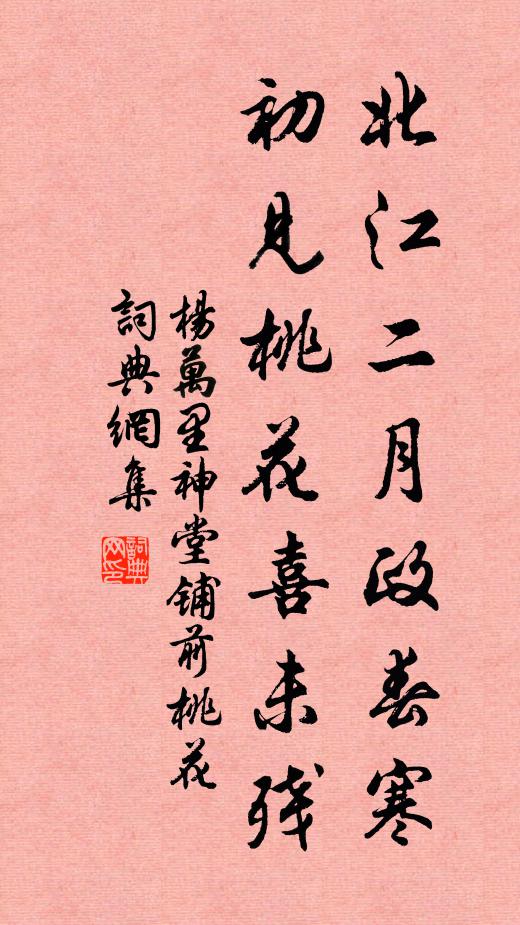 北江二月政春寒
初見桃花喜未殘
楊萬里神堂鋪前桃花
詞典網集
詞典
网印